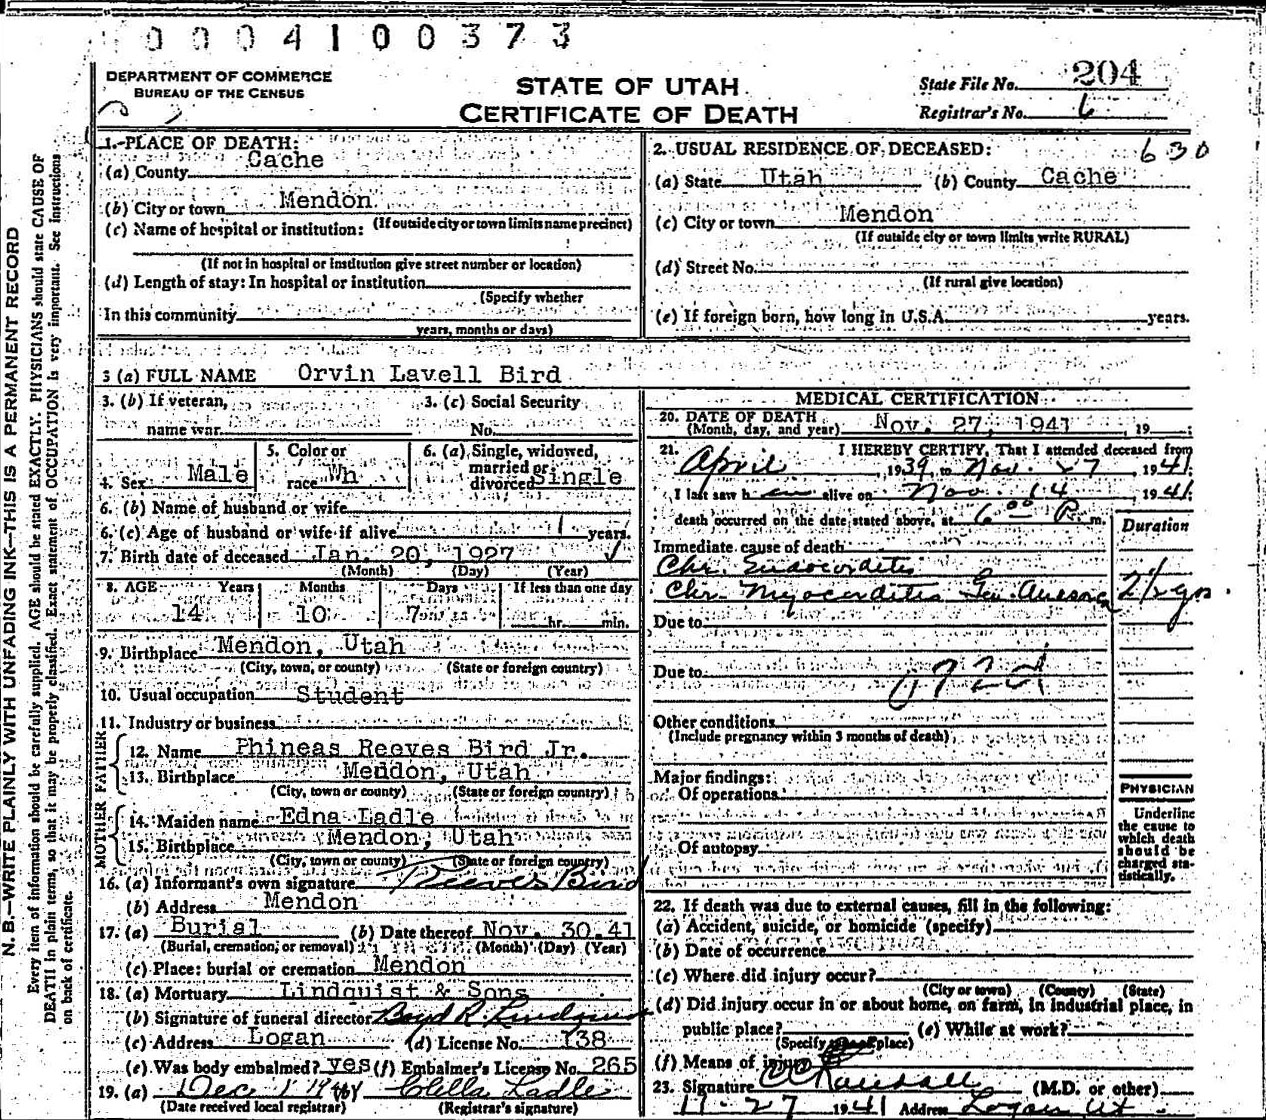 0004100373
DEPARTMENT OF COMMERCE
BUREAU OF THE CENSUS
STATE OF UTAH
CERTIFICATE OF DEATH
State File No. 204
Registrar's No. 6
N. B.—WRITE PLAINLY WITH UNFADING INK—THIS IS A PERMANENT RECORD
Every item of information should be carefully supplied. AGE should be stated EXACTLY. PHYSICIANS should state CAUSE OF
DEATH in plain terms, so that it may be properly classified. Exact statement of OCCUPATION is very important. See instructions
on back of certificate.
1. PLACE OF DEATH:
(a) County Cache
(b) City or town Mendon
(If outside city or town limits name precinct)
(c) Name of hospital or institution:
(If not in hospital or institution give street number or location)
(d) Length of stay: In hospital or institution
(Specify whether
In this community
years, months or days)
2. USUAL RESIDENCE OF DECEASED: 630
(a) State Utah (b) County Cache
(c) City or town Mendon
(If outside city or town limits write RURAL)
(d) Street No.
(If rural give location)
(e) If foreign born, how long in U.S.A. years.
3 (a) FULL NAME Orvin Lavell Bird
3. (b) If veteran, name war
3. (c) Social Security No.
4. Sex Male
5. Color or race Wh
6. (a) Single, widowed, married or divorced Single
6. (b) Name of husband or wife
6. (c) Age of husband or wife if alive years.
7. Birth date of deceased Jan. 20, 1927
(Month) (Day) (Year)
8. AGE Years Months Days If less than one day
14 10 7 hr. min.
9. Birthplace Mendon, Utah
(City, town, or county) (State or foreign country)
10. Usual occupation Student
11. Industry or business
FATHER
12. Name Phineas Reeves Bird Jr.
13. Birthplace Mendon, Utah
(City, town or county) (State or foreign country)
MOTHER
14. Maiden name Edna Ladle
15. Birthplace Mendon, Utah
(City, town or county) (State or foreign country)
16. (a) Informant's own signature Reeves Bird
(b) Address Mendon
17. (a) Burial (b) Date thereof Nov. 30, 41
(Burial, cremation, or removal) (Month) (Day) (Year)
(c) Place: burial or cremation Mendon
18. (a) Mortuary Lindquist & Sons
(b) Signature of funeral director Boyd R. Lindquist
(c) Address Logan (d) License No. 138
(e) Was body embalmed? yes (f) Embalmer's License No. 265
19. (a) Dec 1 1941 Clella Ladle
(Date received local registrar) (Registrar's signature)
MEDICAL CERTIFICATION
20. DATE OF DEATH
(Month, day, and year) Nov. 27, 1941, 19
21. I HEREBY CERTIFY, That I attended deceased from
April, 1939 to Nov. 27, 1941
I last saw him alive on Nov. 14, 1941
death occurred on the date stated above, at 6 00 P. m.
Duration
Immediate cause of death
Chr. Endocarditis
Chr. Myocarditis Gen. 2 1/2 yrs.
Due to
Due to
Other conditions
(Include pregnancy within 3 months of death)
Major findings:
Of operations
Of autopsy
PHYSICIAN
Underline
the cause to
which death
should be
charged sta-
tistically.
22. If death was due to external causes, fill in the following:
(a) Accident, suicide, or homicide (specify)
(b) Date of occurrence
(c) Where did injury occur?
(City or town) (County) (State)
(d) Did injury occur in or about home, on farm, in industrial place, in
public place? (e) While at work?
(Specify place)
(f) Means of injury
23. Signature Randall (M.D. or other)
11-27 1941 Address Logan Ut